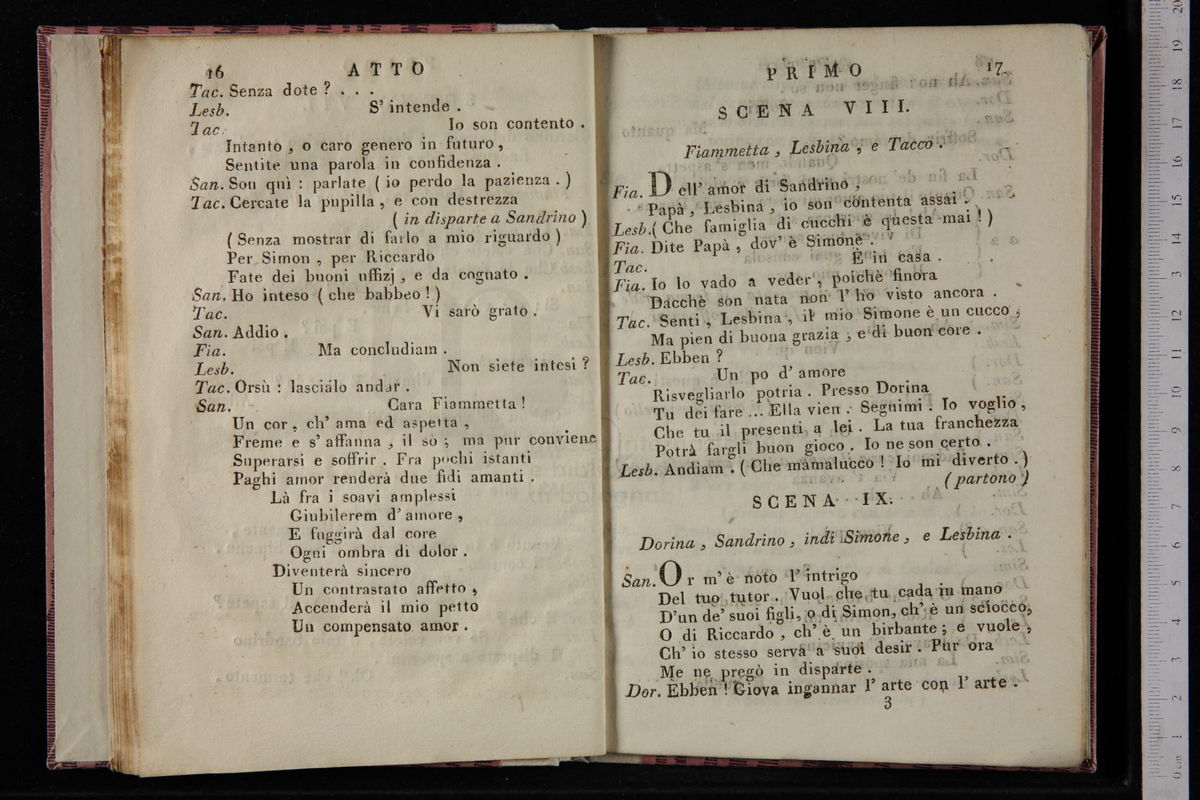 16 ATTO
Tac. Senza dote ? . . .
Lesb. S' intende .
Tac. Io son contento .
Intanto , o caro genero in futuro ,
Sentite una parola in confidenza .
San. Son quì : parlate ( io perdo la pazienza . )
Tac. Cercate la pupilla , e con destrezza
( in disparte a Sandrino )
( Senza mostrar di farlo a mio riguardo )
Per Simon , per Riccardo
Fate dei buoni uffizj , e da cognato .
San. Ho inteso ( che babbeo ! )
Tac. Vi sarò grato .
San. Addio .
Fia. Ma concludiam .
Lesb. Non siete intesi ?
Tac. Orsù : lasciálo andar .
San. Cara Fiammetta !
Un cor , ch' ama ed aspetta ,
Freme e s' affanna , il so ; ma pur conviene
Superarsi e soffrir . Fra pochi istanti
Paghi amor renderà due fidi amanti .
Là fra i soavi amplessi
Giubilerem d' amore ,
E fuggirà dal core
Ogni ombra di dolor .
Diventerà sincero
Un contrastato affetto ,
Accenderà il mio petto
Un compensato amor .
PRIMO 17
SCENA VIII.
Fiammetta , Lesbina , e Tacco .
Fia. Dell' amor di Sandrino ,
Papà , Lesbina , io son contenta assai .
Lesb. ( Che famiglia di cucchi è questa mai ! )
Fia. Dite Papà , dov' è Simone .
Tac. È in casa .
Fia. Io lo vado a veder , poichè finora
Dacchè son nata non l' ho visto ancora .
Tac. Senti , Lesbina , il mio Simone è un cucco ,
Ma pien di buona grazia , e di buon core .
Lesb. Ebben ?
Tac. Un po d' amore
Risvegliarlo potria . Presso Dorina
Tu dei fare ... Ella vien . Seguimi . Io voglio ,
Che tu il presenti a lei . La tua franchezza
Potrà fargli buon gioco . Io ne son certo .
Lesb. Andiam . ( Che mamalucco ! Io mi diverto . )
( partono )
SCENA IX.
Dorina , Sandrino , indi Simone , e Lesbina .
San. Or m' è noto l' intrigo
Del tuo tutor . Vuol che tu cada in mano
D'un de' suoi figli, o di Simon, ch' è un sciocco,
O di Riccardo , ch' è un birbante ; e vuole ,
Ch' io stesso serva a suoi desir . Pur ora
Me ne pregò in disparte .
Dor. Ebben ! Giova ingannar l' arte con l' arte .
3